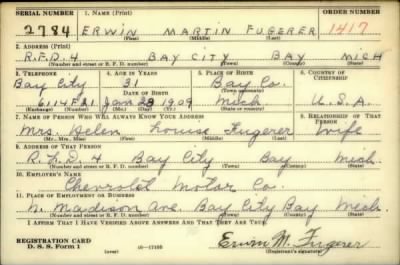 SERIAL NUMBER 1. NAME (Print) ORDER NUMBER
2784 ERWIN MARTIN FUGERER 1417
(First) (Middle) (Last)
2. ADDRESS (Print)
R.F.D. 4 BAY CITY BAY MICH
(Number and street or R. F. D. number) (Town) (County) (State)
3. TELEPHONE 4. AGE IN YEARS 5. PLACE OF BIRTH 6. COUNTRY OF CITIZENSHIP
Bay City 31 Bay Co.
DATE OF BIRTH
6114F21 Jan 28 1909 Mich. U.S.A.
(Exchange) (Number) (Mo.) (Day) (Yr.) (State or country)
7. NAME OF PERSON WHO WILL ALWAYS KNOW YOUR ADDRESS 8. RELATIONSHIP OF THAT PERSON
Mrs. Helen Louise Fugerer Wife
(Mr., Mrs., Miss) (First) (Middle) (Last)
9. ADDRESS OF THAT PERSON
R.F.D. 4 Bay City Bay Mich.
(Number and street or R. F. D. number) (Town) (County) (State)
10. EMPLOYER'S NAME
Chevrolet Motor Co.
11. PLACE OF EMPLOYMENT OR BUSINESS
N. Madison Ave. Bay City Bay Mich.
(Number and street or R. F. D. number) (Town) (County) (State)
I AFFIRM THAT I HAVE VERIFIED ABOVE ANSWERS AND THAT THEY ARE TRUE.
REGISTRATION CARD
D. S. S. Form 1 (over) 16—17105 Erwin M. Fugerer
(Registrant's signature)